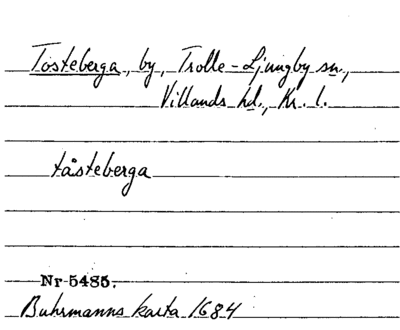 Tosteberga, by, Trolle-Ljungby sn.,
Villands hd., Kr. l.
tåsteberga
Nr 5485.
Buhrmanns karta 1684